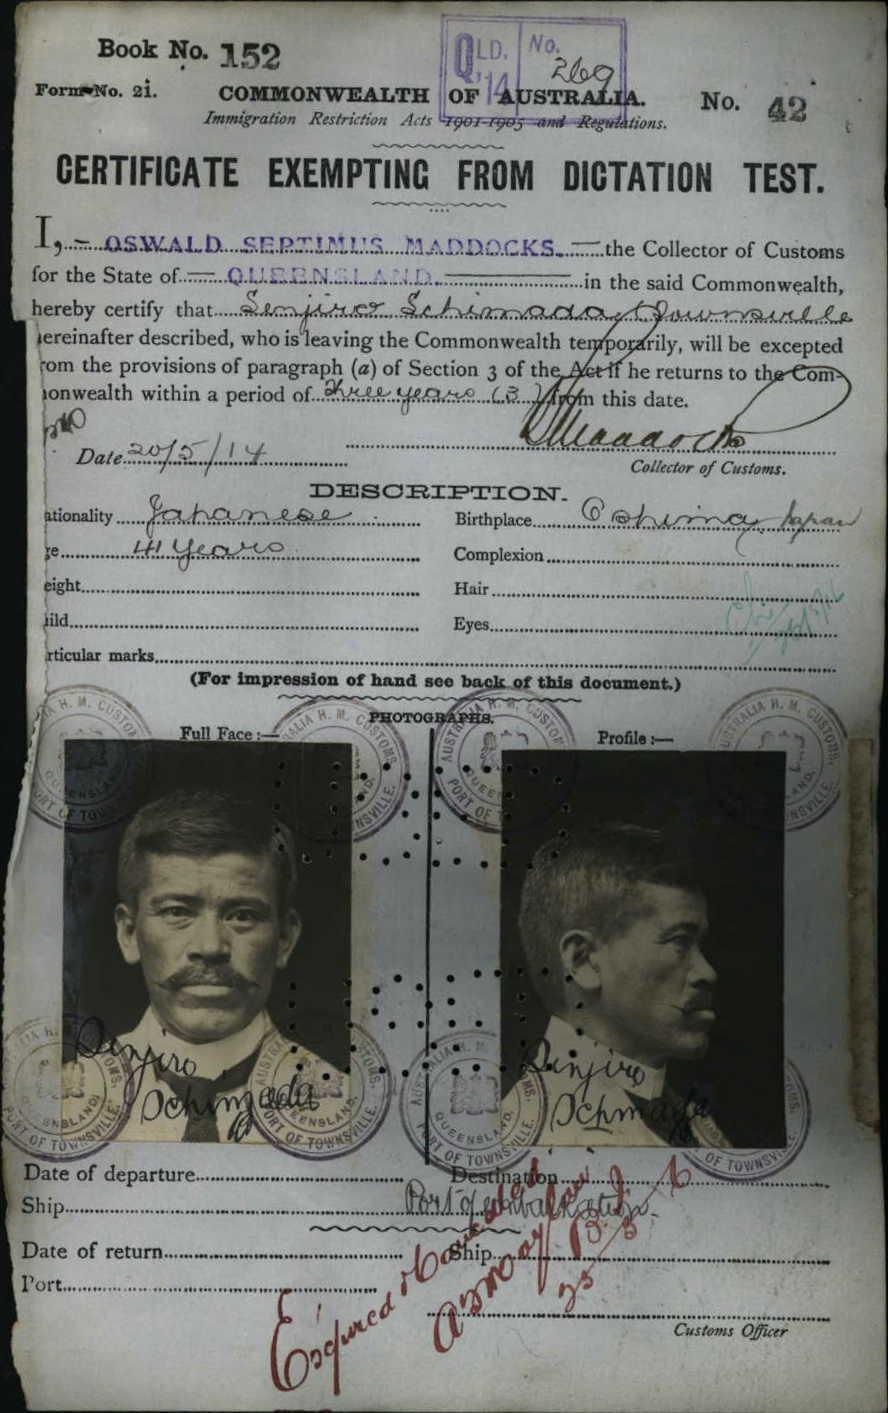 Book No. 152
QLD. No.
'14 269
Form No. 21.
COMMONWEALTH OF AUSTRALIA.
No. 42
Immigration Restriction Acts 1901-1905 and Regulations.
CERTIFICATE EXEMPTING FROM DICTATION TEST.
I, OSWALD SEPTIMUS MADDOCKS. the Collector of Customs
for the State of QUEENSLAND. in the said Commonwealth,
hereby certify that Senjiro Schimada, Townsville
ereinafter described, who is leaving the Commonwealth temporarily, will be excepted
rom the provisions of paragraph (a) of Section 3 of the Act if he returns to the Com-
onwealth within a period of three years (3) from this date.
Date 20/5/14
Collector of Customs.
DESCRIPTION.
ationality Japanese
Birthplace Oshima, Japan
ge 41 Years
Complexion
eight
Hair
uild
Eyes
rticular marks
(For impression of hand see back of this document.)
PHOTOGRAPHS.
Full Face :—
Profile :—
AUSTRALIA H. M. CUSTOMS.
QUEENSLAND.
PORT OF TOWNSVILLE.
Date of departure
Destination
Ship
Port of embarkation
Date of return
Ship
Port
Customs Officer